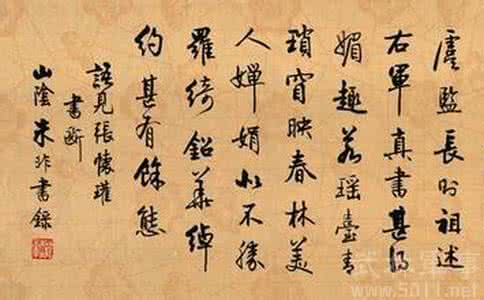 虞監長於祖述
右軍真書甚得
媚趣若瑶臺青
瑣窅映春林美
人嬋娟似不勝
羅綺鉛華綽
約甚有餘態
語見張懷瓘
書斷
山陰朱非書錄
www.5011.net